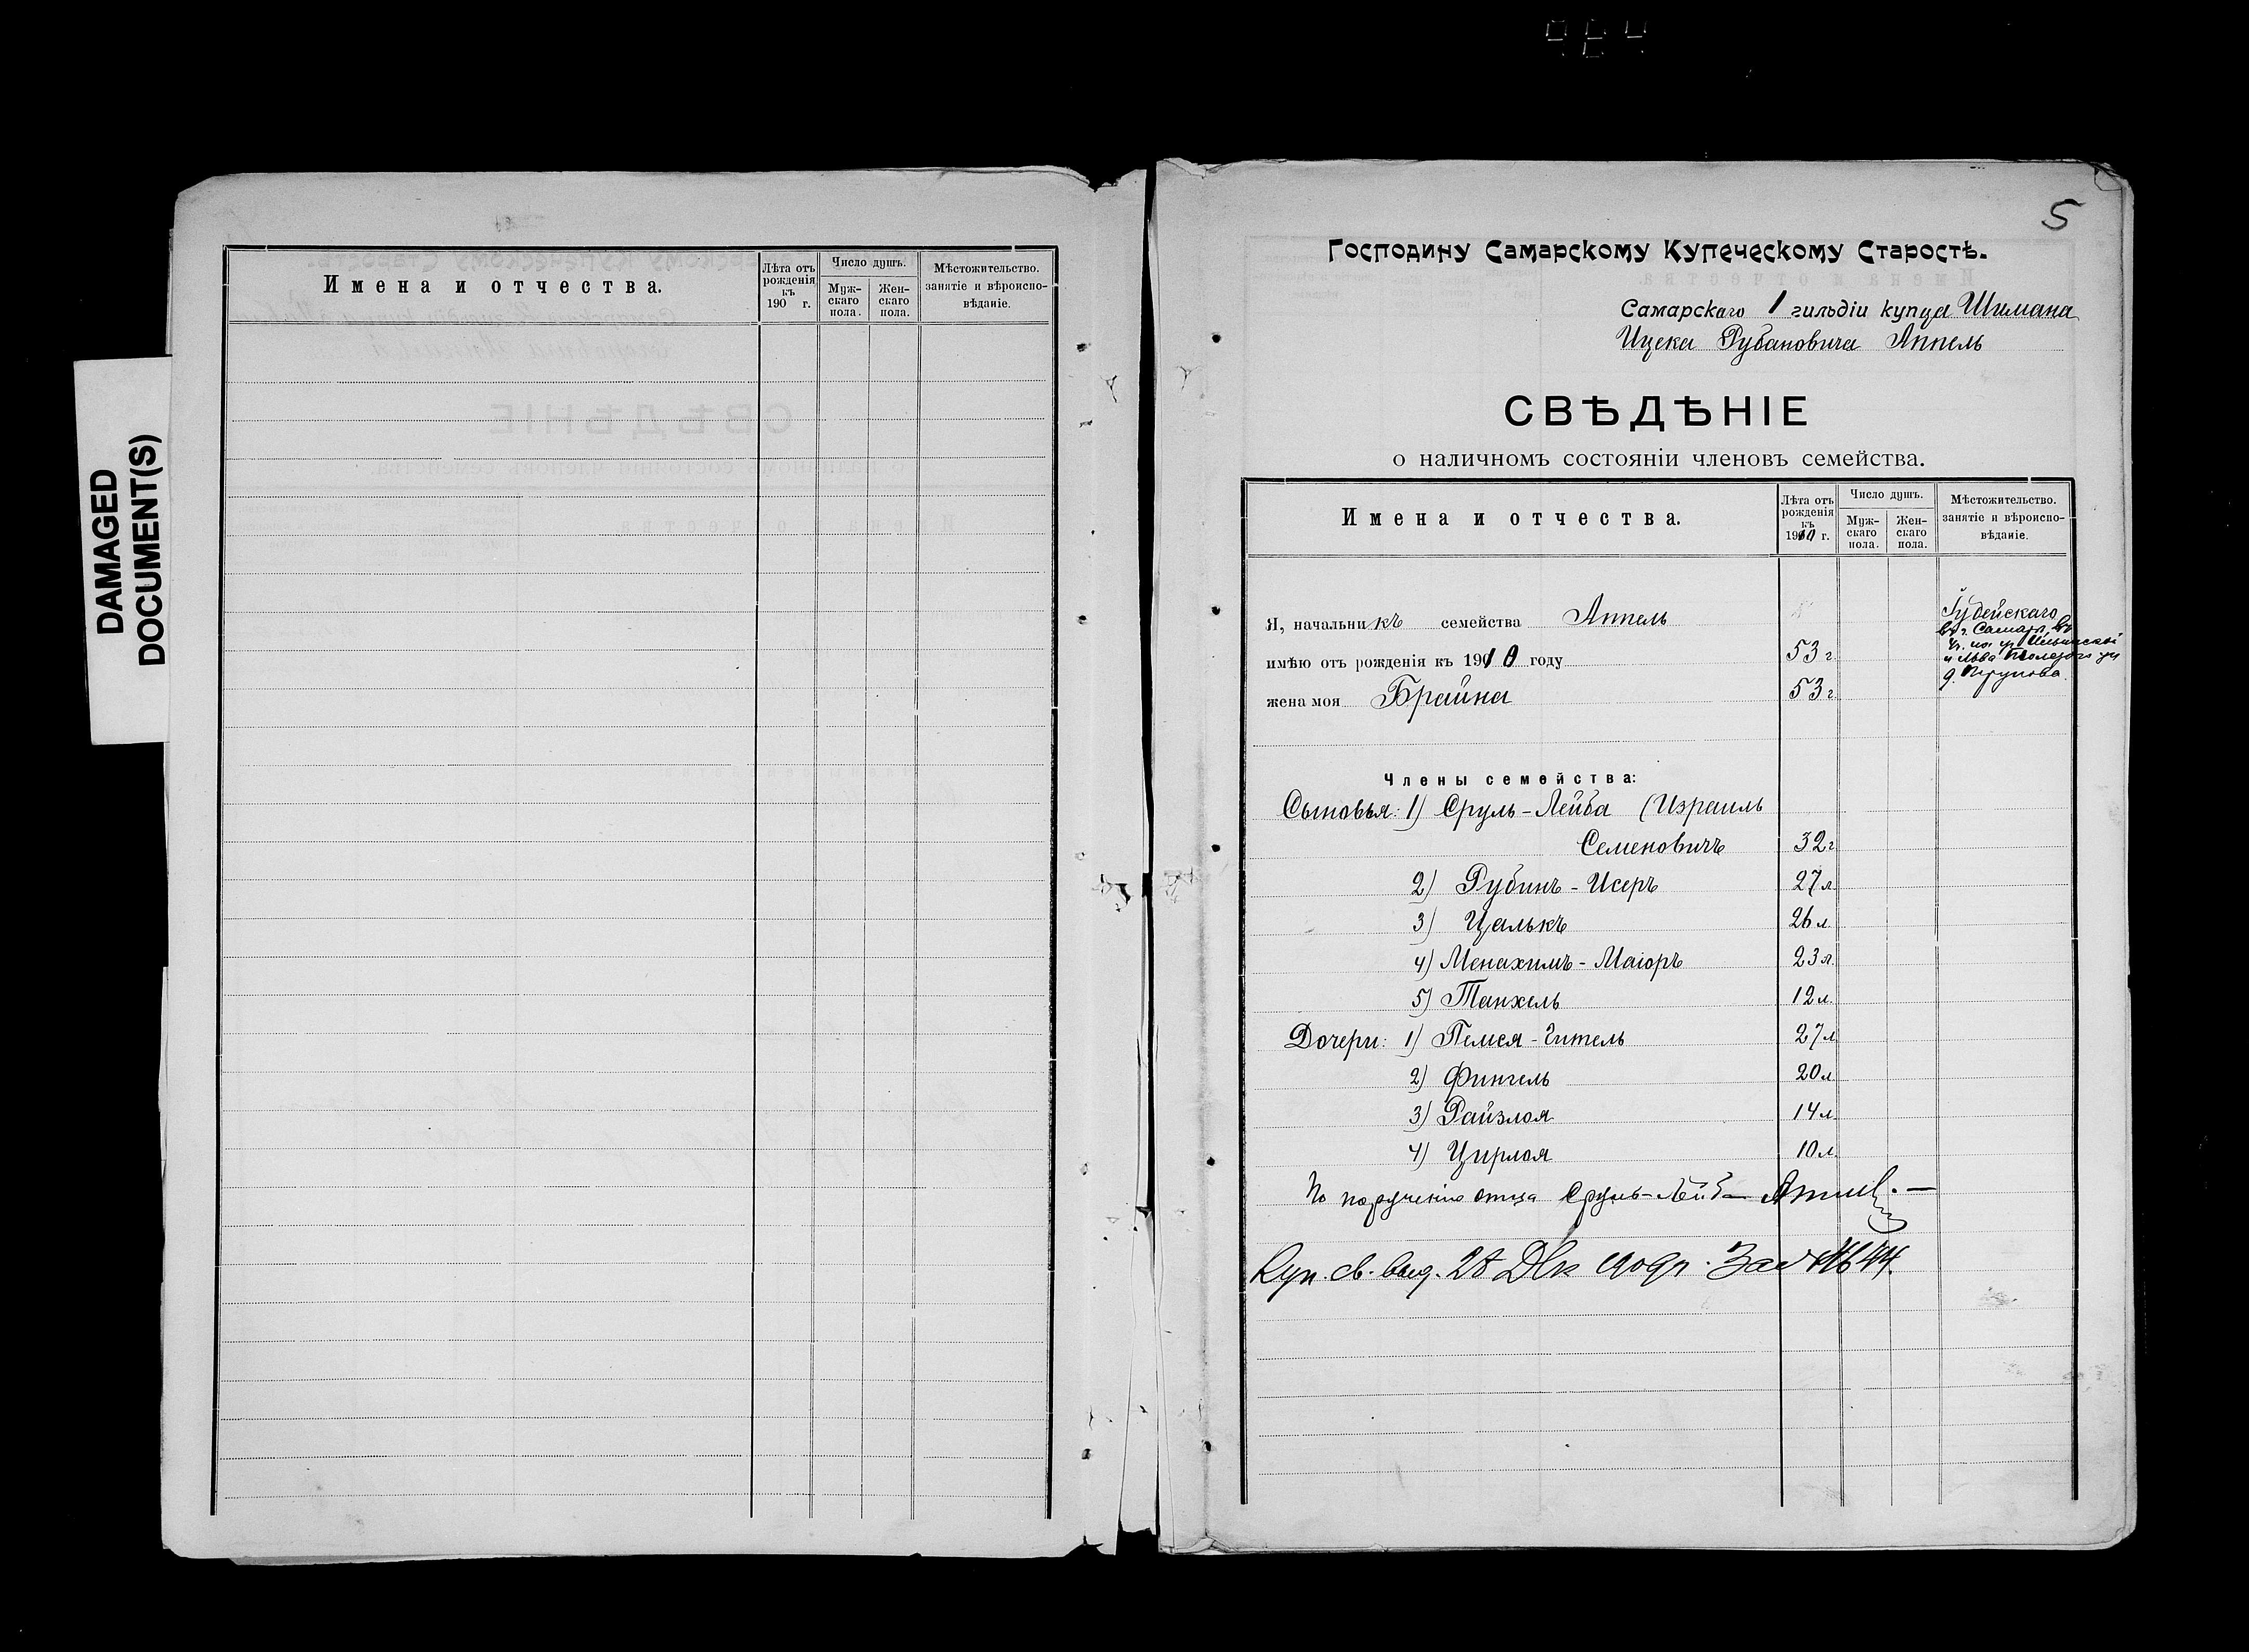 DAMAGED
DOCUMENT(S)
Имена и отчества.
Лѣта отъ рожденія къ 190 г.
Число душъ.
Муж-скаго пола.
Жен-скаго пола.
Мѣстожительство. занятіе и вѣроиспо-вѣданіе.
5
Господину Самарскому Купеческому Старостѣ.
Самарскаго 1 гильдіи купца Шимана
Ицека Рубановича Аппель
СВѢДѢНІЕ
о наличномъ состояніи членовъ семейства.
Имена и отчества.
Лѣта отъ рожденія къ 1910 г.
Число душъ.
Муж-скаго пола.
Жен-скаго пола.
Мѣстожительство. занятіе и вѣроиспо-вѣданіе.
Я, начальникъ семейства Аппель
Іудейскаго
въ г. Самарѣ, въ
ч. на уг. Ильинской
и Льва Толстого ул
д.
имѣю отъ рожденія къ 1910 году 53 г.
жена моя Брайна 53 г.
Члены семейства:
Сыновья: 1) Сруль-Лейба (Израиль
Семеновичъ 32 г
2) Рубинъ-Исеръ 27 л.
3) Цалькъ 26 л.
4) Менахимъ-Маіоръ 23 л.
5) Танхель 12 л.
Дочери: 1) Песся-Гитель 27 л
2) Фингель 20 л
3) Райзлоя 14 л.
4) Цирлоя 10 л.
По порученію отца Сруль-Лейба Аппель.
Куп. св. выд. 28 Дек 1909 г. за № 44.